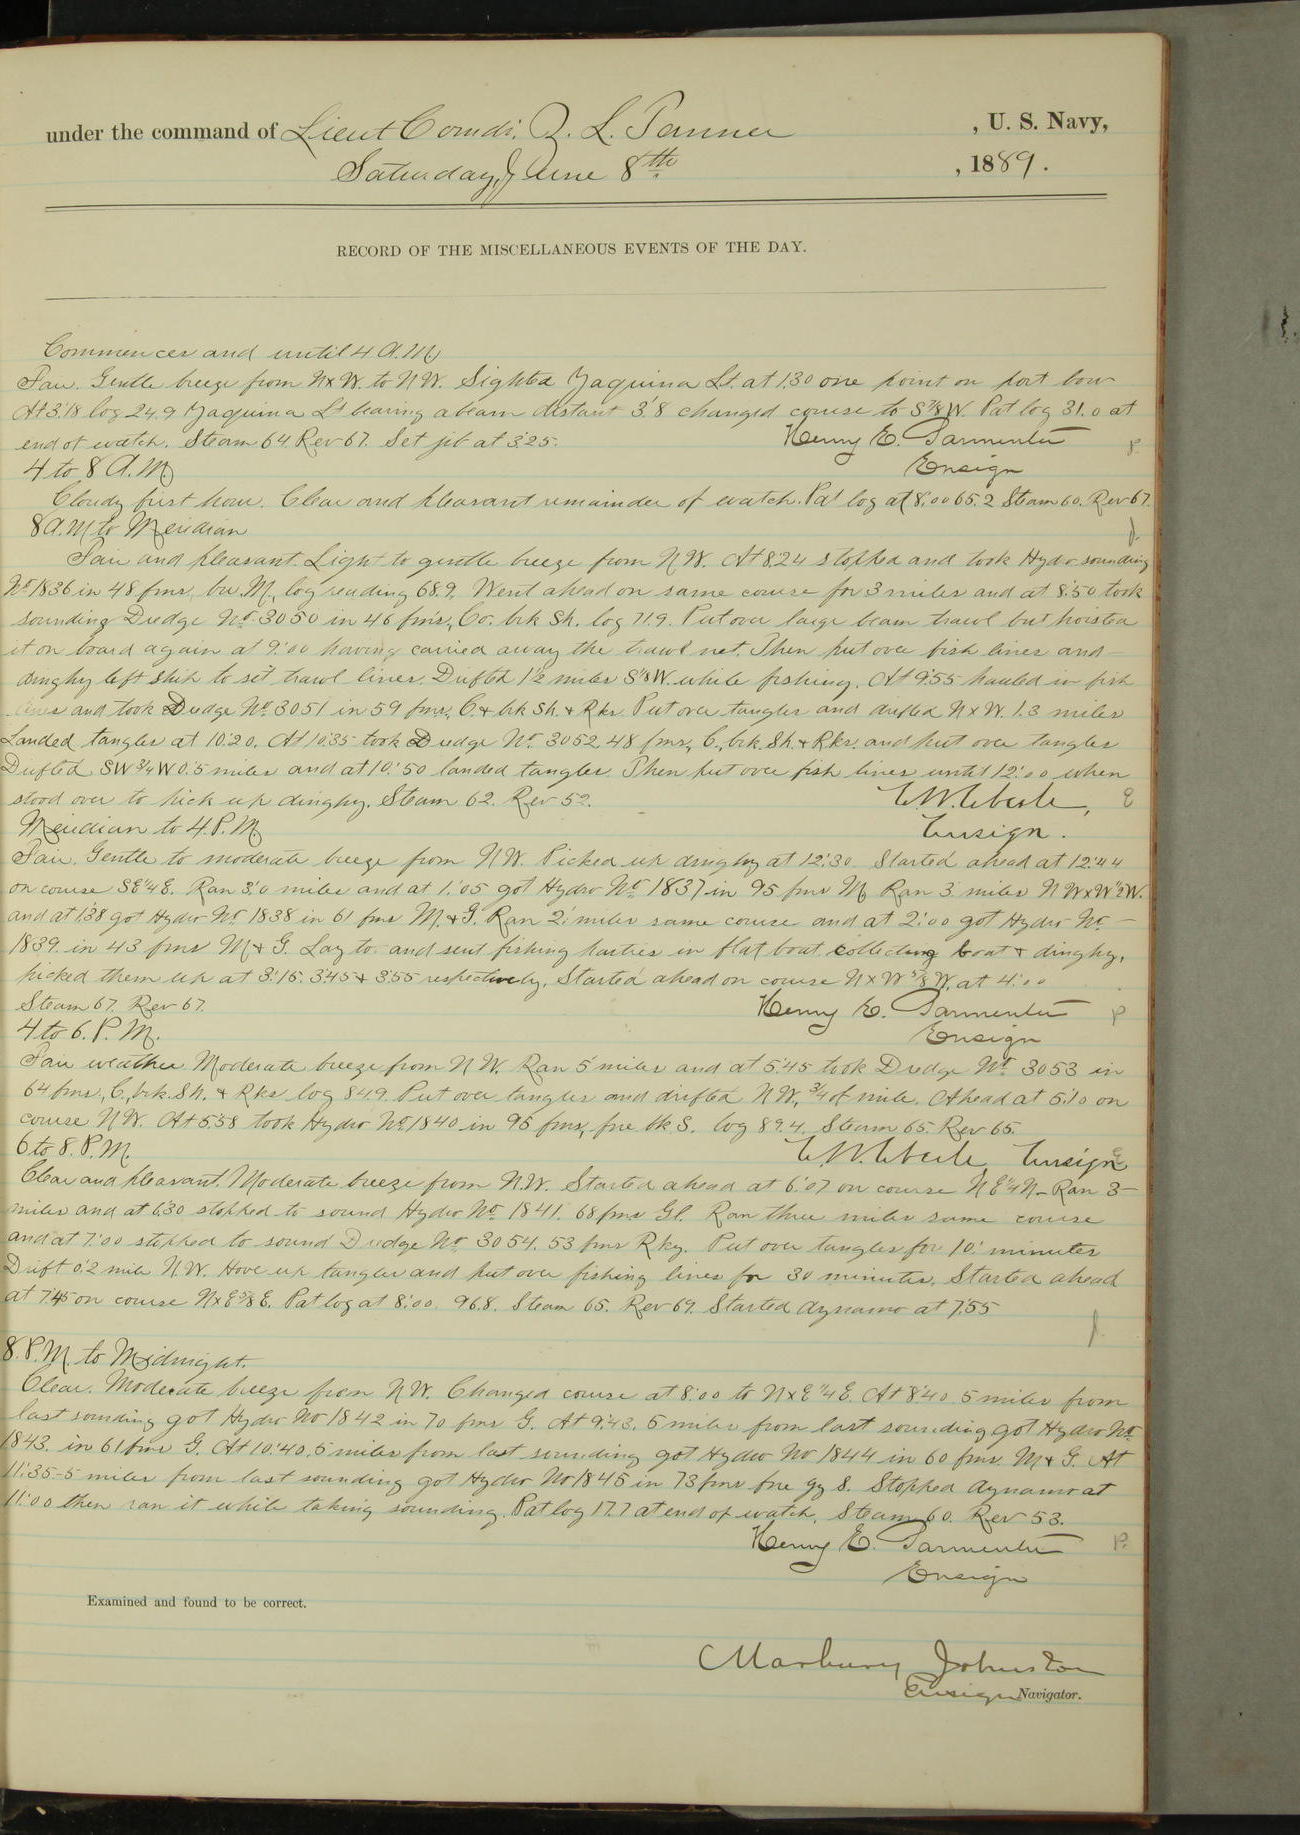 under the command of Lieut Comdr. Z. L. Tanner , U. S. Navy,
Saturday, June 8th , 1889.
RECORD OF THE MISCELLANEOUS EVENTS OF THE DAY.
Commences and until 4 A.M
Fair. Gentle breeze from NxW. to NW. Sighted Yaquina Lt. at 1:30 one point on port bow
At 3:18 log 24.9 Yaquina Lt bearing abeam distant 3'.8 changed course to S 7/8 W. Pat log 31.0 at
end of watch. Steam 64. Rev 67. Set jib at 3:25. Henry E. Parmenter
4 to 8 A.M Ensign
Cloudy first hour. Clear and pleasant remainder of watch. Pat log at 8:00 65.2 Steam 60. Rev 67.
8 A.M to Meridian
Fair and pleasant. Light to gentle breeze from NW. At 8:24 stopped and took Hydro sounding
No 1836 in 48 fms, M, log reading 68.9. Went ahead on same course for 3 miles and at 8:50 took
sounding Dredge No. 3050 in 46 fms, Co. brk Sh. log 71.9. Put over large beam trawl but hoisted
it on board again at 9:00 having carried away the trawl net. Then put over fish lines and
dinghy left ship to set trawl lines. Drifted 1 1/2 miles S 1/8 W. while fishing. At 9:55 hauled in fish
lines and took Dredge No. 3051 in 59 fms, C. & brk Sh. & Rks. Put over tangles and drifted NxW. 1.3 miles
Landed tangles at 10:20. At 10:35 took Dredge No. 3052 48 fms, C., brk. Sh. & Rks. and put over tangles
Drifted SW 3/4 W 0.5 miles and at 10:50 landed tangles. Then put over fish lines until 12:00 when
stood over to pick up dinghy. Steam 62. Rev 52. E. W. Eberle,
Meridian to 4 P.M Ensign.
Fair. Gentle to moderate breeze from NW. Picked up dinghy at 12:30. Started ahead at 12:44
on course SE 1/4 E. Ran 3.0 miles and at 1:05 got Hydro No. 1837 in 95 fms M. Ran 3 miles NWxW 1/2 W.
and at 1:38 got Hydro No. 1838 in 61 fms M. & G. Ran 2 miles same course and at 2:00 got Hydro No. –
1839 in 43 fms M & G. Lay to and sent fishing parties in flat boat collecting boat & dinghy,
picked them up at 3:15. 3:45 & 3:55 respectively. Started ahead on course NxW 5/8 W. at 4:00
Steam 67. Rev 67. Henry E. Parmenter
4 to 6. P.M. Ensign
Fair weather Moderate breeze from NW. Ran 5 miles and at 5:45 took Dredge No. 3053 in
64 fms, C., brk. Sh. & Rks log 84.9. Put over tangles and drifted NW, 3/4 of mile. Ahead at 5:10 on
course NW. At 5:58 took Hydro No. 1840 in 95 fms, fne bk S. log 89.4. Steam 65. Rev 65
6 to 8. P.M. E. W. Eberle, Ensign
Clear and pleasant. Moderate breeze from N.W. Started ahead at 6:07 on course NE 1/4 N – Ran 3 –
miles and at 6:30 stopped to sound Hydro No. 1841. 68 fms Gl. Ran three miles same course
and at 7:00 stopped to sound Dredge No. 3054. 53 fms Rky. Put over tangles for 10. minutes
Drift 0.2 mile N.W. Hove up tangles and put over fishing lines for 30 minutes. Started ahead
at 7:45 on course NxE 5/8 E. Pat log at 8:00. 96.8. Steam 65. Rev 69. Started dynamo at 7:55
8. P.M. to Midnight.
Clear. Moderate breeze from NW. Changed course at 8:00 to NxE 1/4 E. At 8:40 5 miles from
last sounding got Hydro No 1842 in 70 fms G. At 9:43. 5 miles from last sounding got Hydro No.
1843. in 61 fms G. At 10:40. 5 miles from last sounding got Hydro No 1844 in 60 fms. M & G. At
11:35 – 5 miles from last sounding got Hydro No 1845 in 73 fms fne gy S. Stopped dynamo at
11:00 then ran it while taking sounding. Pat log 17.7 at end of watch. Steam 60. Rev 53.
Henry E. Parmenter
Ensign
Examined and found to be correct.
Marbury Johnston
Ensign Navigator.